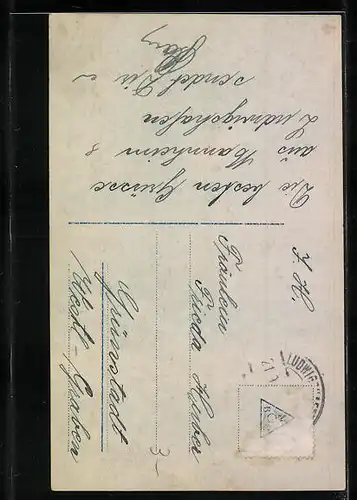 Die besten Grüsse
aus Mannheim &
Ludwigshafen
sendet Dir
F. H.
Fräulein
Frieda Huber
Grünstadt
3-
LUDWIG
21